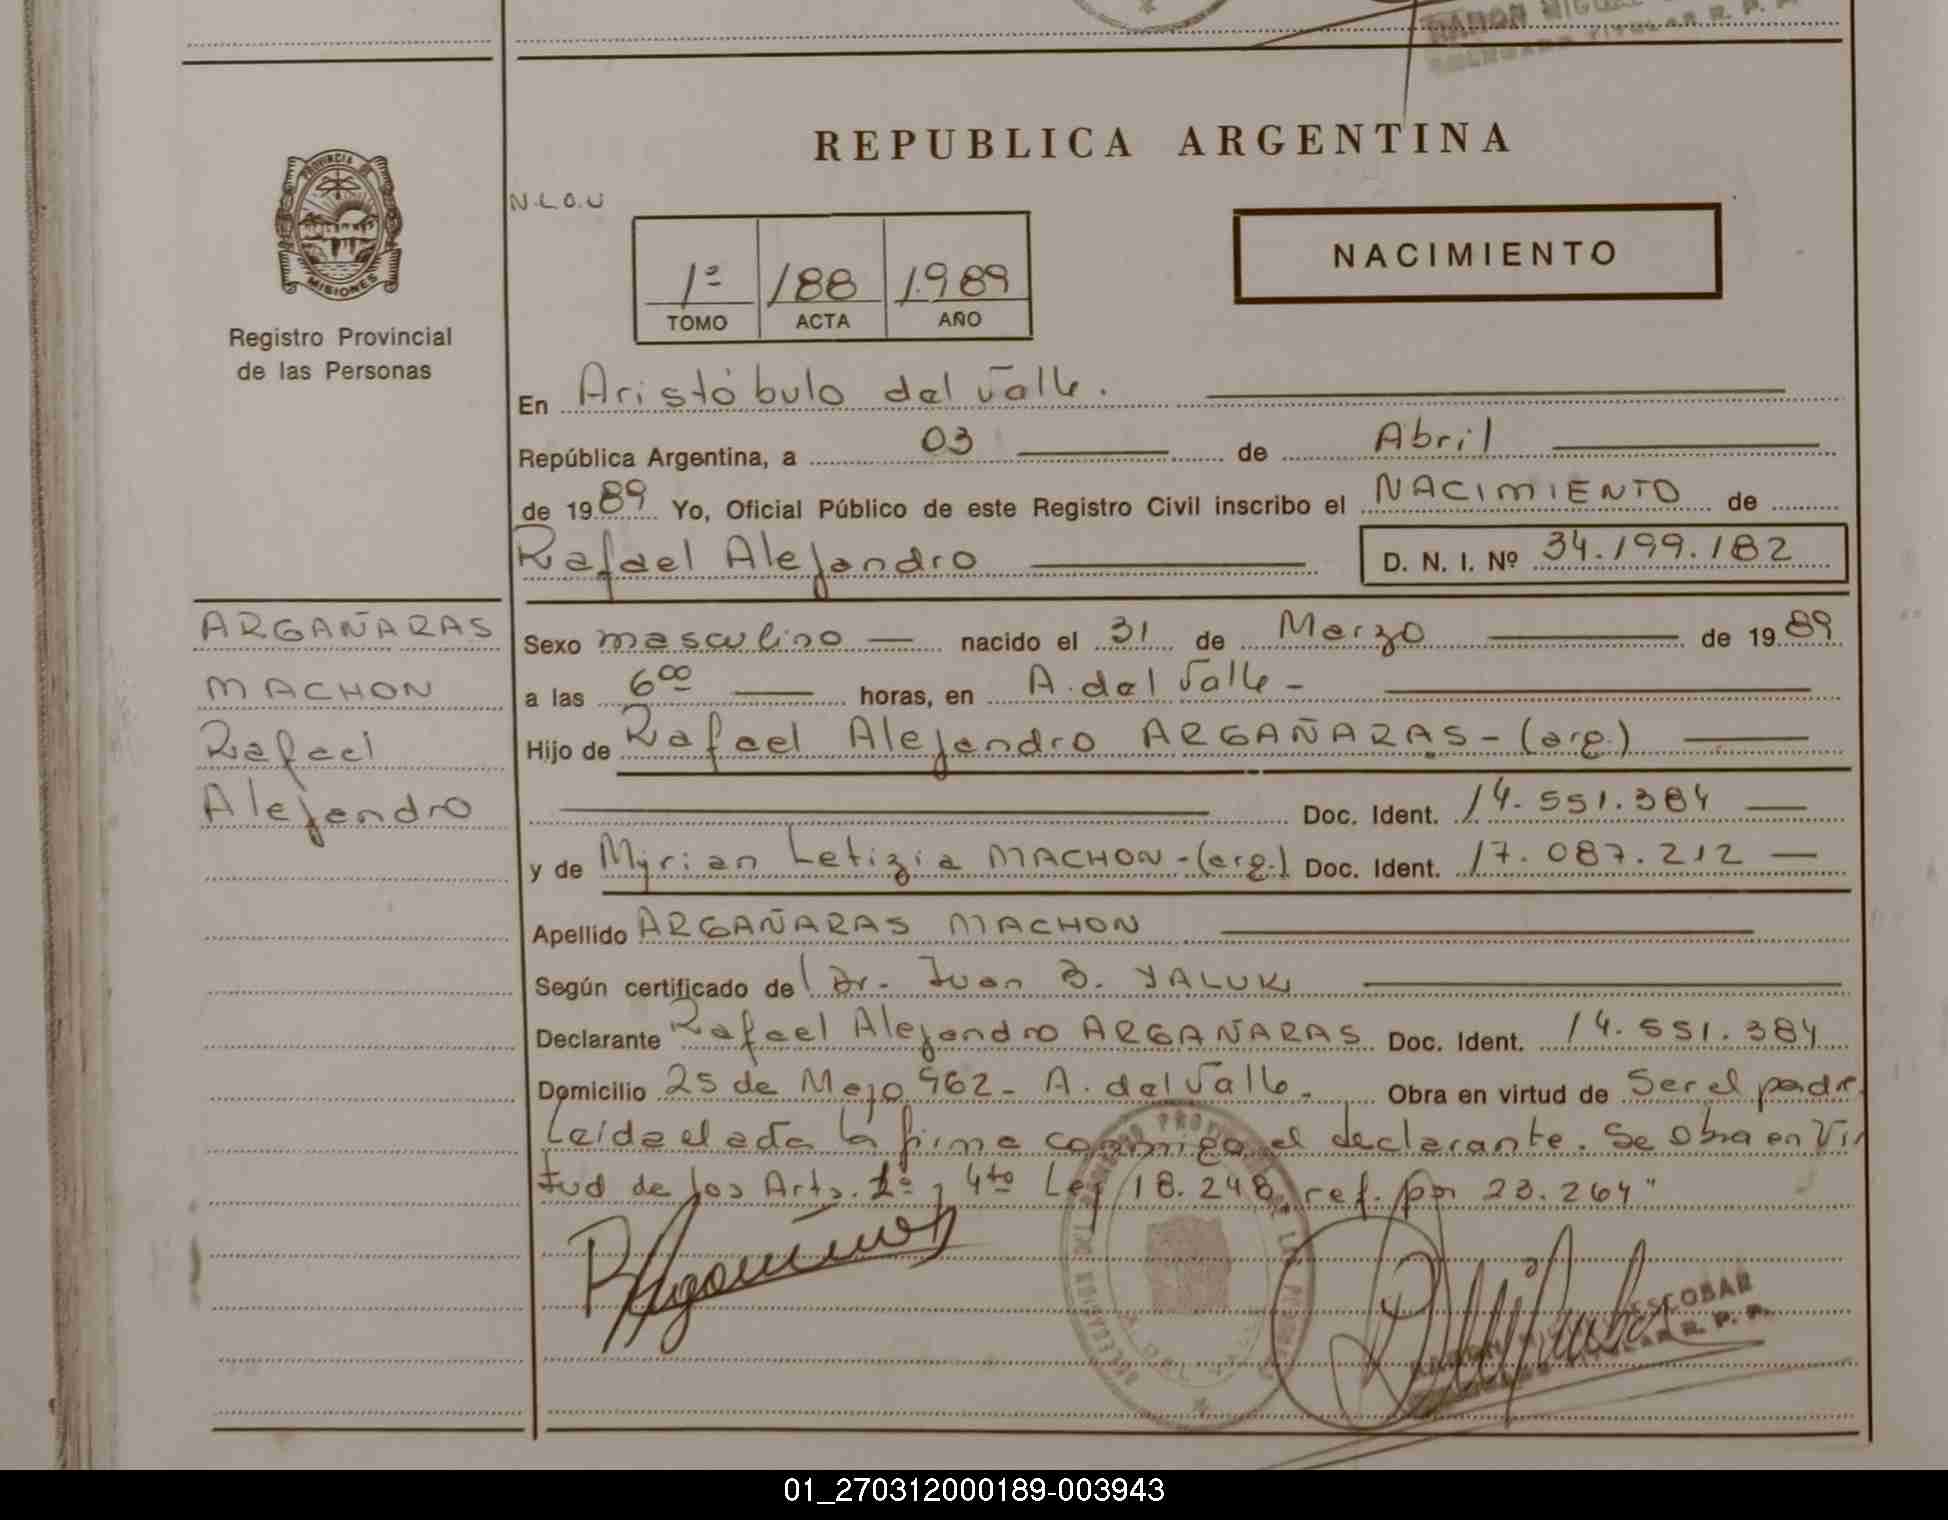 RAMON MIGUEL
R. P. P.
REPUBLICA ARGENTINA
PROVINCIA DE
MISIONES
Registro Provincial
de las Personas
N.L.O.U
1º 188 1989
TOMO ACTA AÑO
NACIMIENTO
En Aristóbulo del Valle.
República Argentina, a 03 de Abril
de 1989 Yo, Oficial Público de este Registro Civil inscribo el NACIMIENTO de
Rafael Alejandro D. N. I. Nº 34.199.182
ARGAÑARAS
MACHON
Rafael
Alejandro
Sexo masculino nacido el 31 de Marzo de 1989
a las 6 00 horas, en A. del Valle -
Hijo de Rafael Alejandro ARGAÑARAS - (arg.)
Doc. Ident. 14.551.384
y de Myrian Letizia MACHON - (arg.) Doc. Ident. 17.087.212
Apellido ARGAÑARAS MACHON
Según certificado del Dr. Juan B. YALUK
Declarante Rafael Alejandro ARGAÑARAS Doc. Ident. 14.551.384
Domicilio 25 de Mayo 962 - A. del Valle. Obra en virtud de Ser el padre.
Leída el acta la firma conmigo el declarante. Se obra en Vir
tud de los Arts. 2º y 4to Ley 18.248 ref. por 23.264"
ESCOBAR
R. P. P.
01_270312000189-003943